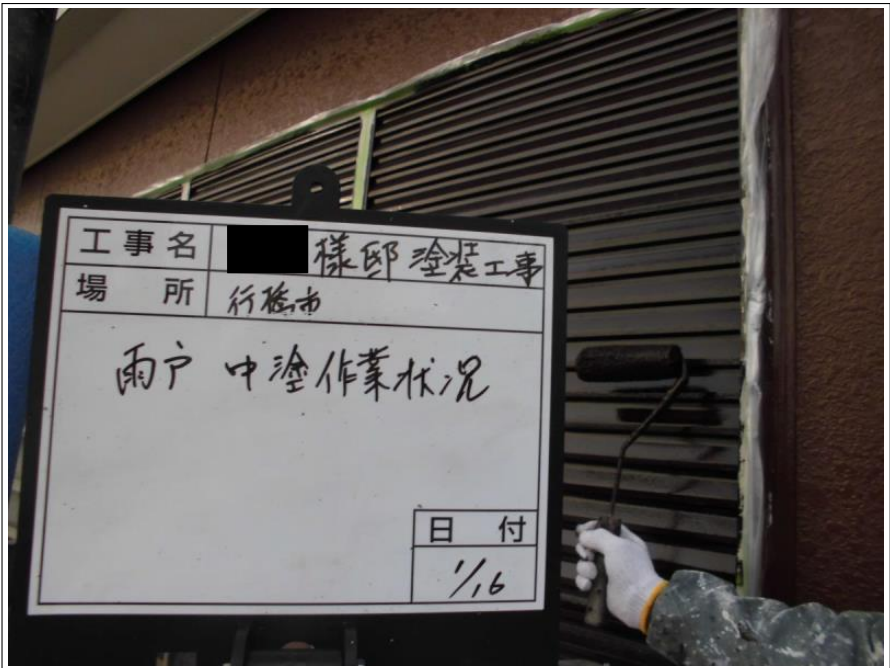 工事名 様邸塗装工事
場所 行橋市
雨戸 中塗作業状況
日付
1/16